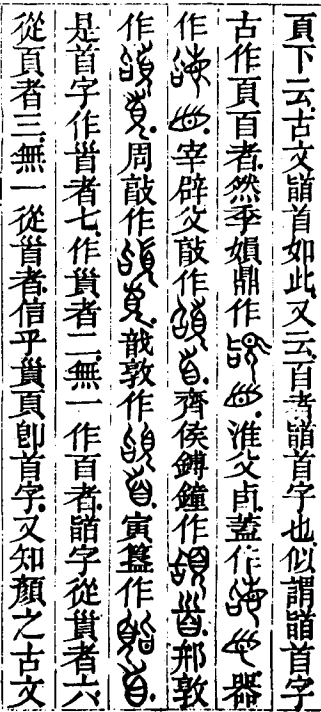 頁下云古文䭫首如此又云百者䭫首字也似謂䭫首字
古作頁百者然季㜏鼎作淮父卣蓋作器
作宰辟父敦作齊侯鎛鐘作邢敦
作周敦作敦作寅簋作
是首字作𩠐者七作者二無一作百者䭫字從者六
從頁者三無一從𩠐者信乎頁卽首字又知顏之古文